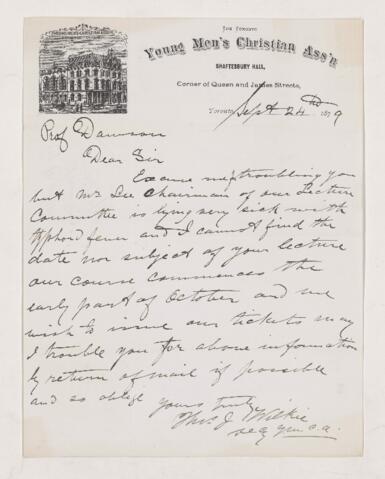 THE TORONTO
Young Men's Christian Ass'n
SHAFTESBURY HALL,
Corner of Queen and James Streets,
Toronto, Sept 24th 1879
Prof Dawson
Dear Sir
Excuse me troubling you
but Mr Lee Chairman of our Lecture
Committee is lying very sick with
typhoid fever and I cannot find the
date nor subject of your lecture
our course commences the
early part of October and we
wish to issue our tickets may
I trouble you for above information
by return of mail if possible
and so oblige yours truly
Thos J Wilkie
secy ymca